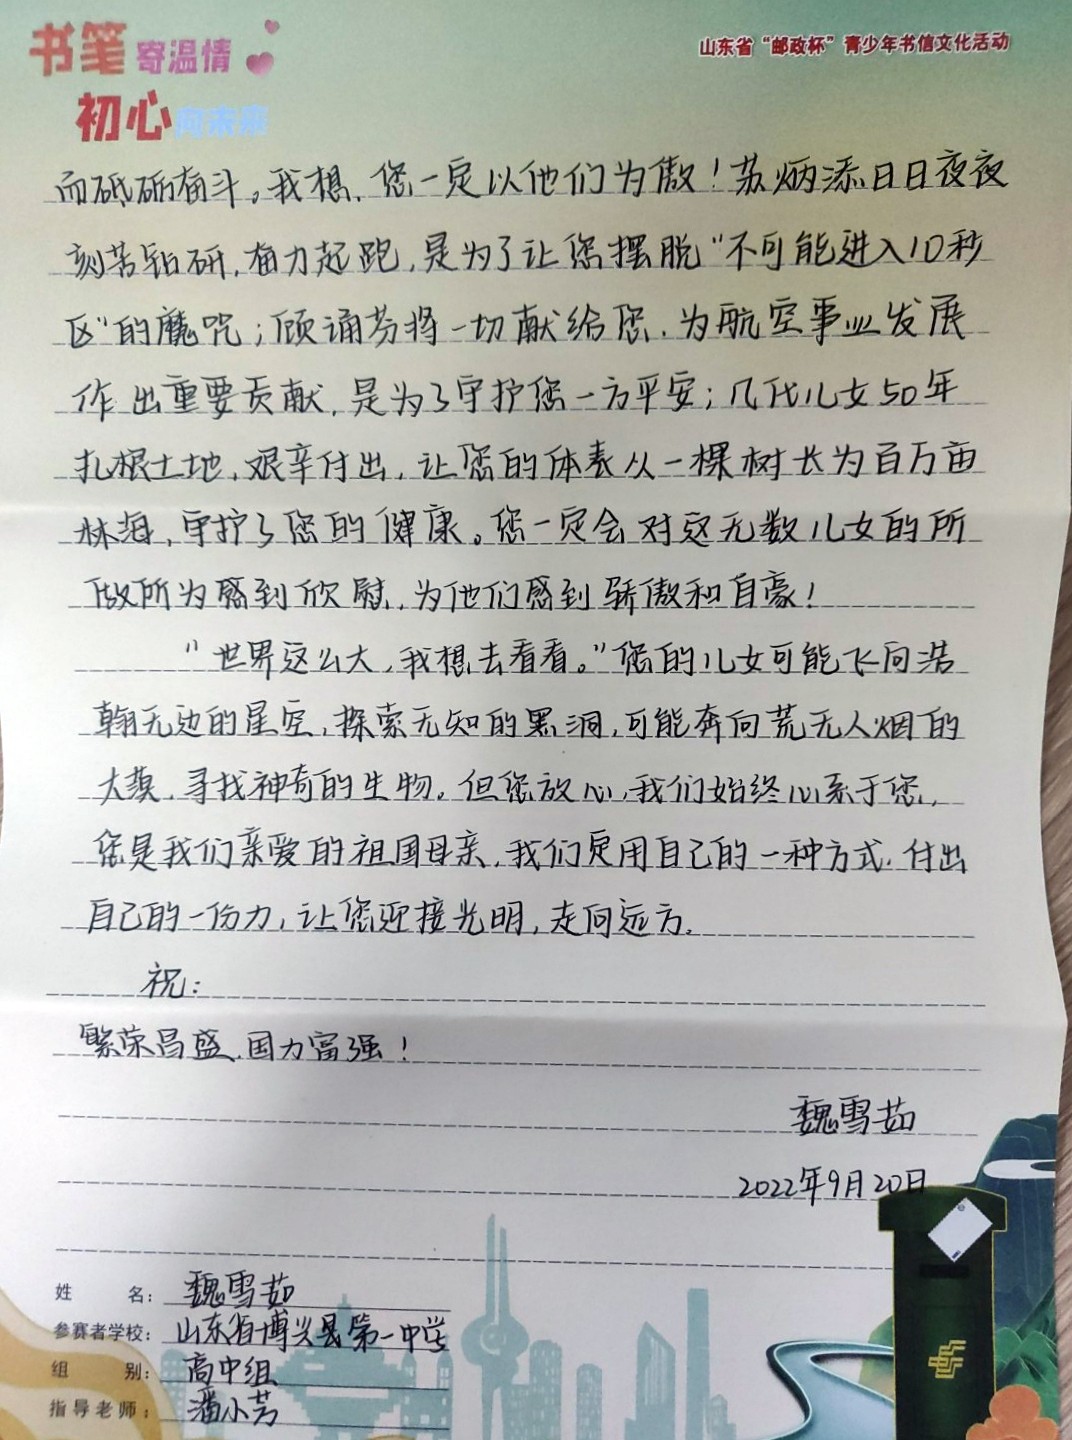 书笔寄温情
初心向未来
山东省“邮政杯”青少年书信文化活动
而砥砺奋斗。我想,您一定以他们为傲!苏炳添日日夜夜
刻苦钻研,奋力起跑,是为了让您摆脱“不可能进入10秒
区”的魔咒;顾诵芬将一切献给您,为航空事业发展
作出重要贡献,是为了守护您一方平安;几代儿女50年
扎根土地,艰辛付出,让您的体表从一棵树长为百万亩
林海,守护了您的健康。您一定会对这无数儿女的所
做所为感到欣慰,为他们感到骄傲和自豪!
“世界这么大,我想去看看。”您的儿女可能飞向浩
翰无边的星空,探索无知的黑洞,可能奔向荒无人烟的
大漠,寻找神奇的生物。但您放心,我们始终心系于您,
您是我们亲爱的祖国母亲,我们定用自己的一种方式,付出
自己的一份力,让您迎接光明,走向远方.
祝:
繁荣昌盛,国力富强!
魏雪茹
2022年9月20日
姓名:魏雪茹
参赛者学校:山东省博兴县第一中学
组别:高中组
指导老师:潘小芳